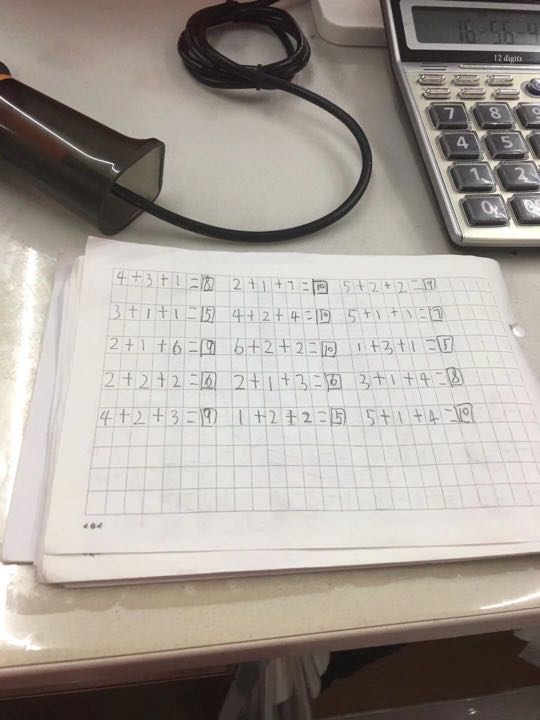 16-56-4
12 digits
7 8 9
4 5
1 2
0 00
4+3+1=8 2+1+7=10 5+2+2=9
3+1+1=5 4+2+4=10 5+1+1=7
2+1+6=9 6+2+2=10 1+3+1=5
2+2+2=6 2+1+3=6 3+1+4=8
4+2+3=9 1+2+2=5 5+1+4=10